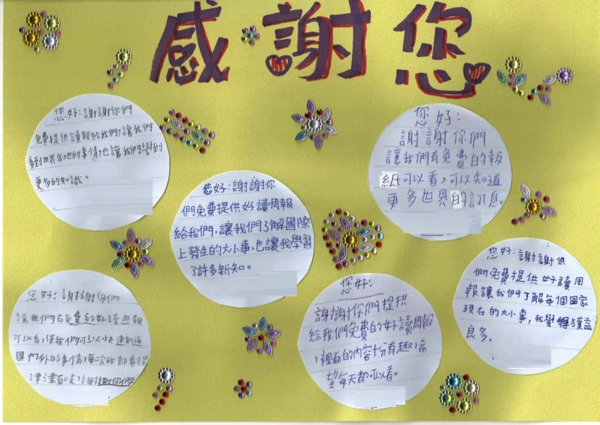 感謝您
您好:謝謝你們
免費提供讀報給我們,讓我們
看到世界各地的事情,也讓我們學到
更多的知識。
您好:謝謝你
們免費提供好讀周報
給我們,讓我們了解國際
上發生的大小事,也讓我學習
了許多新知。
您好:
謝謝你們
讓我們有免費的報
紙可以看,可以知道
更多世界的訊息。
您好:謝謝你們
讓我們有免費的好讀周報
可以看,使我們可以
國
您好:
謝謝你們提供
給我們免費的好讀周報
,裡面的內容十分有趣,希
望每天都可以看。
您好:謝謝你
們免費提供好讀周
報讓我們了解每個國家
現在的大小事,我覺得獲益
良多。